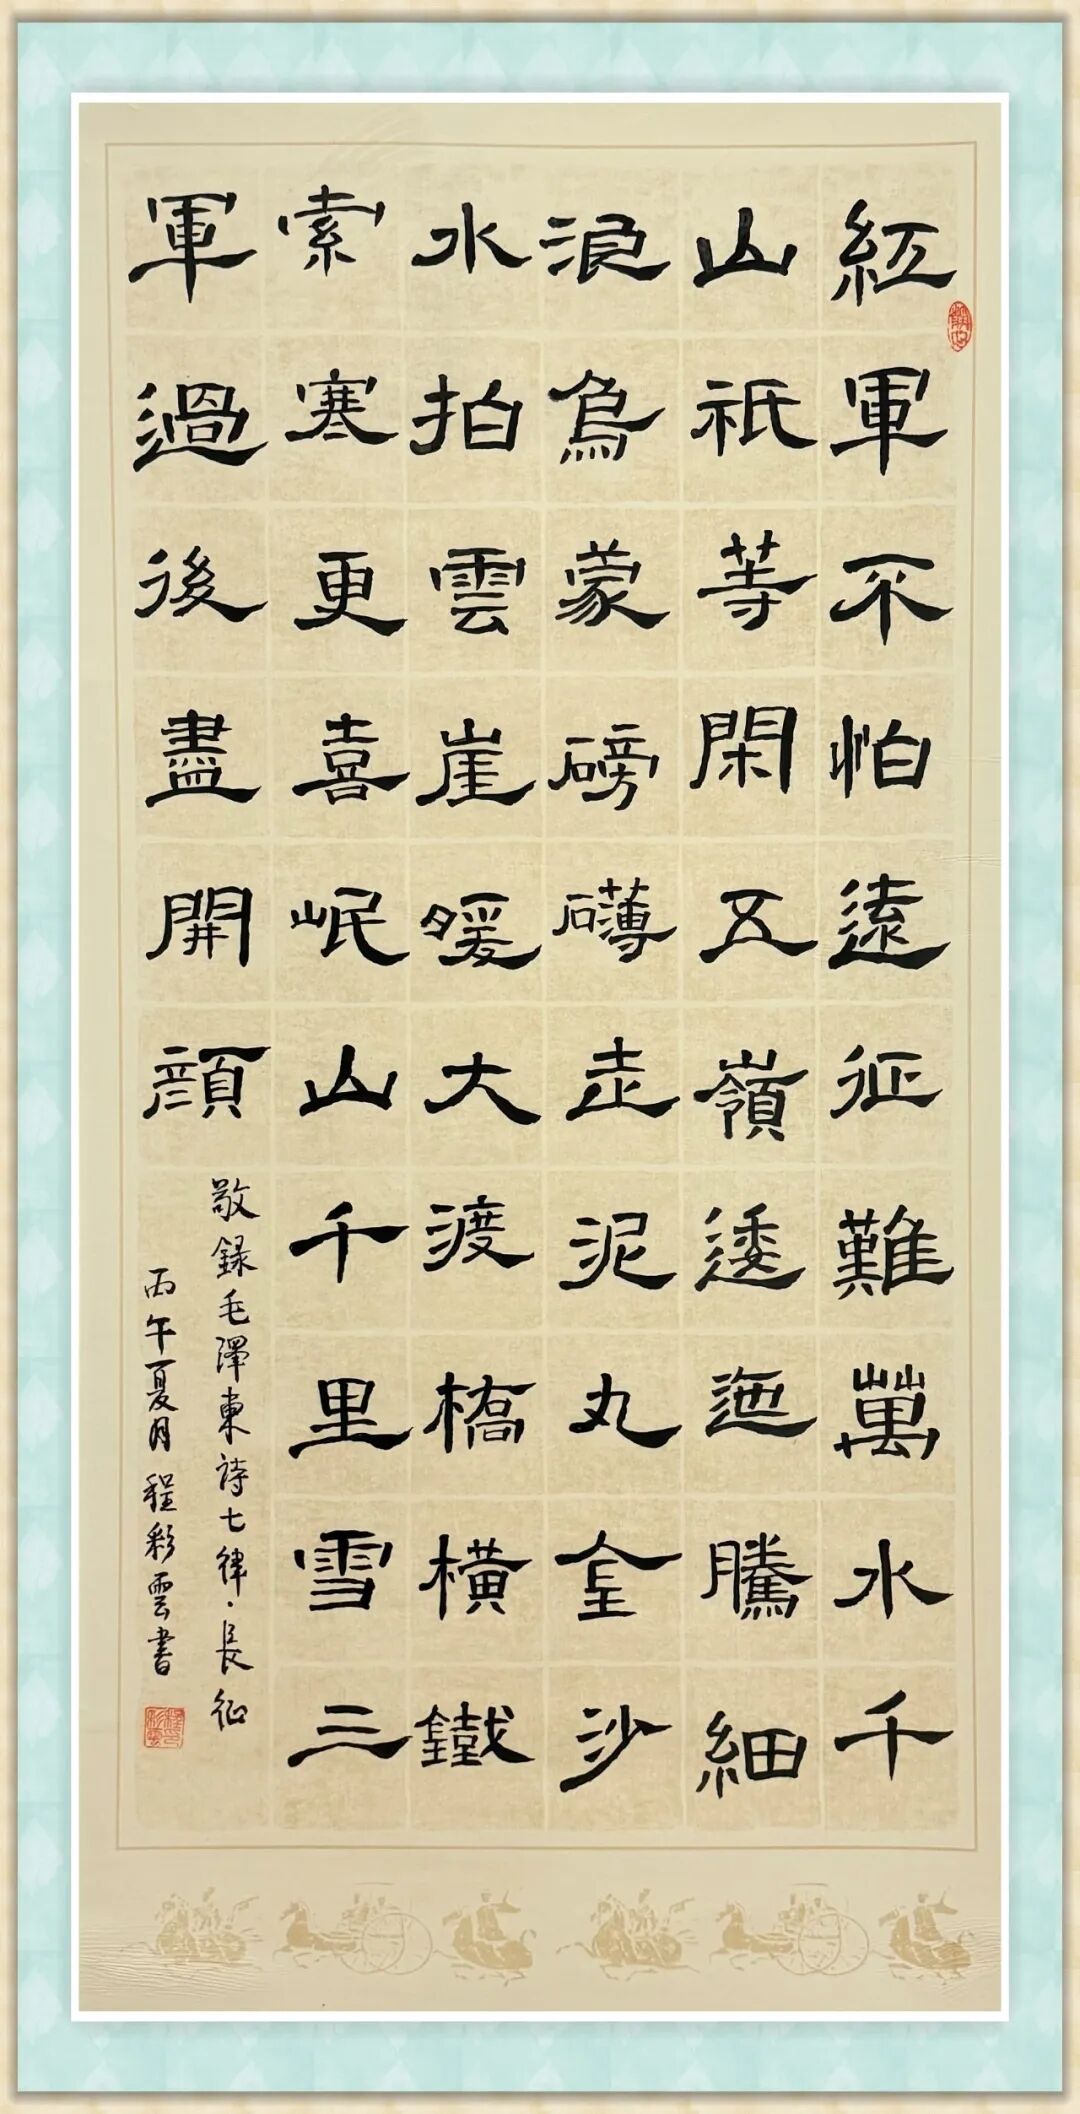 紅軍不怕遠征難萬水千
山祇等閑五嶺逶迤騰細
浪烏蒙磅礴走泥丸金沙
水拍雲崖暖大渡橋橫鐵
索寒更喜岷山千里雪三
軍過後盡開顏
敬錄毛澤東詩七律·長征
丙午夏月 程彩雲書